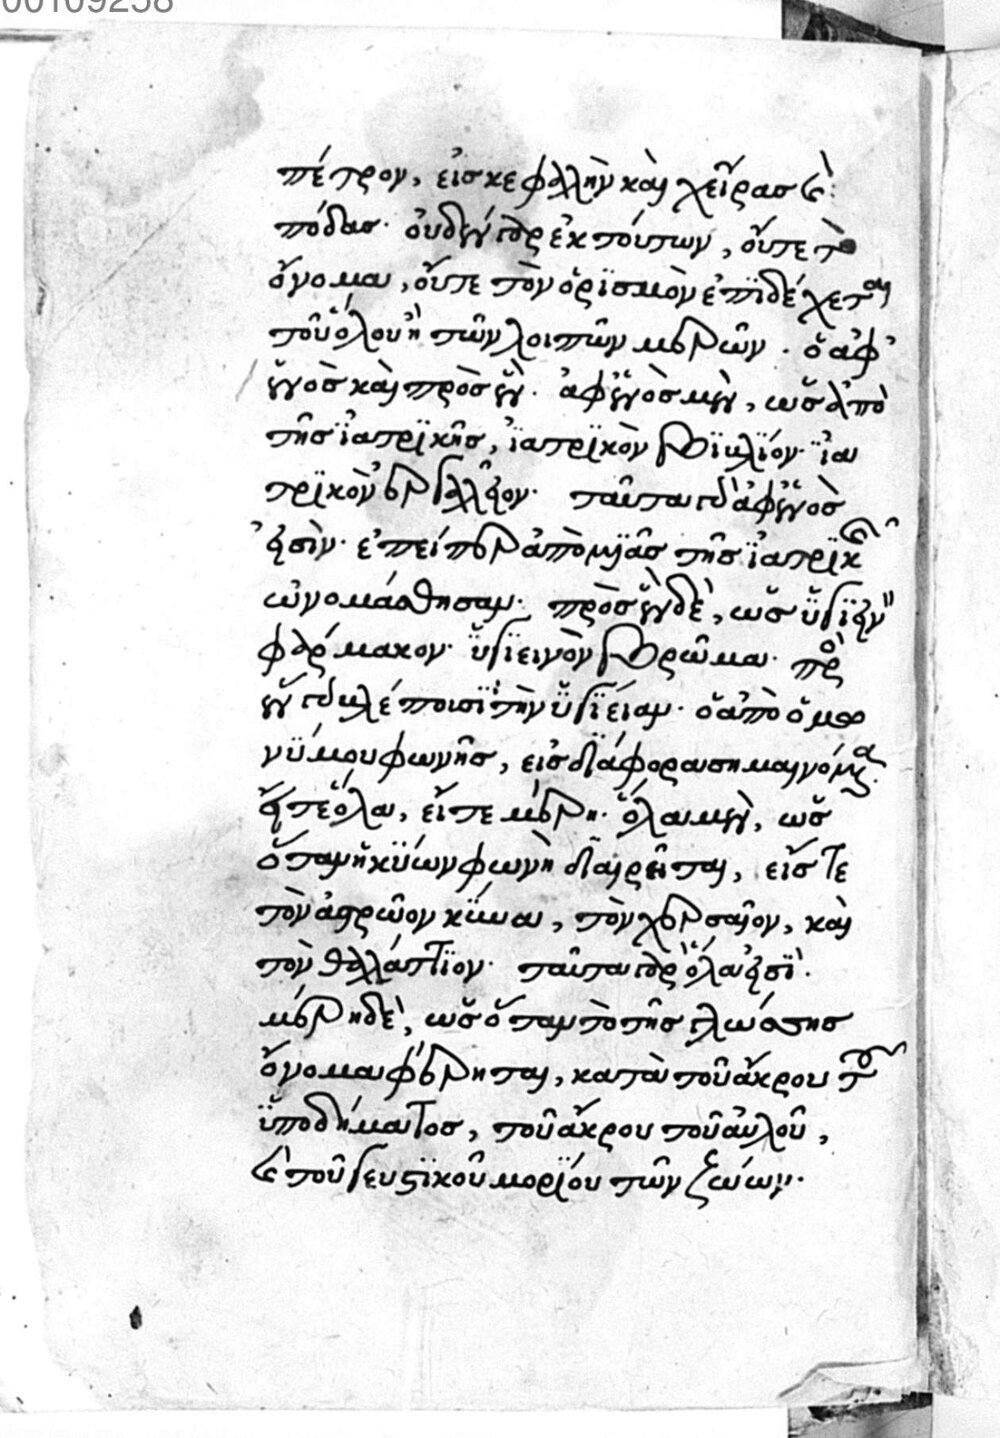 00109258
πέτρον, εἰσ κεφαλὴν καὶ χεῖρασ καὶ
πόδασ· οὐδὲν γὰρ ἐκ τούτων, οὔτε τὸ
ὄνομα, οὔτε τὸν ὁρϊσμὸν ἐπϊδέχεται
τοῦ ὅλου ἢ τῶν λοιπῶν μερῶν. ὃ ἀφ'
ἑνὸσ καὶ πρὸσ ἕν· ἀφ' ἑνὸσ μὲν, ὡσ ἀπὸ
τῆσ ἰατρϊκῆσ, ἰατρϊκὸν βϊβλϊόν· ἰα
τρϊκὸν ἐργαλεῖον· ταῦτα γὰρ ἀφ' ἑνὸσ
εἰσὶν· ἐπείπερ ἀπὸ μϊᾶσ τῆσ ἰατρϊκῆσ
ὠνομάσθησαν· πρὸσ ἓν δὲ, ὡσ ὑγϊεινὸν
φάρμακον· ὑγϊεινὸν βρῶμα· πρὸσ
ἓν γὰρ βλέπουσϊ τὴν ὑγϊείαν· ὃ ἀπὸ ὁμω
νύμου φωνῆσ, εἰσ διάφορα σημαινόμενα
εἴτε ὅλα, εἴτε μέρη· ὅλα μὲν, ὡσ
ὅταν ἡ κύων φωνὴ διαιρεῖται, εἴσ τε
τὸν ἀστρῶον κύνα, τὸν χερσαῖον, καὶ
τὸν θαλάττϊον· ταῦτα γὰρ ὅλα εἰσϊ.
μέρη δὲ, ὡσ ὅταν τὸ τῆσ γλώσσησ
ὄνομα φέρηται, κατὰ τοῦ ἄκρου τοῦ
ὑποδήματοσ, τοῦ ἄκρου τοῦ αὐλοῦ,
καὶ τοῦ γευστϊκοῦ μορϊου τῶν ζώων.